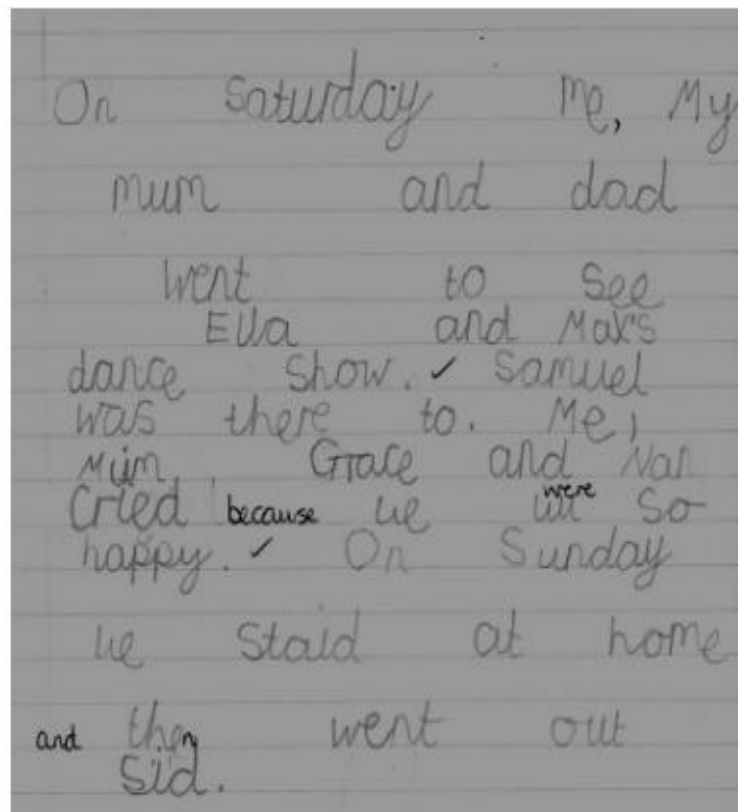 On Saturday me, My
mum and dad
went to see
Ella and Max's
dance show. ✓ Samuel
was there to. Me,
Mum Grace and Nan
Cried because we were so
happy. ✓ On Sunday
we staid at home
and then went out
Sid.